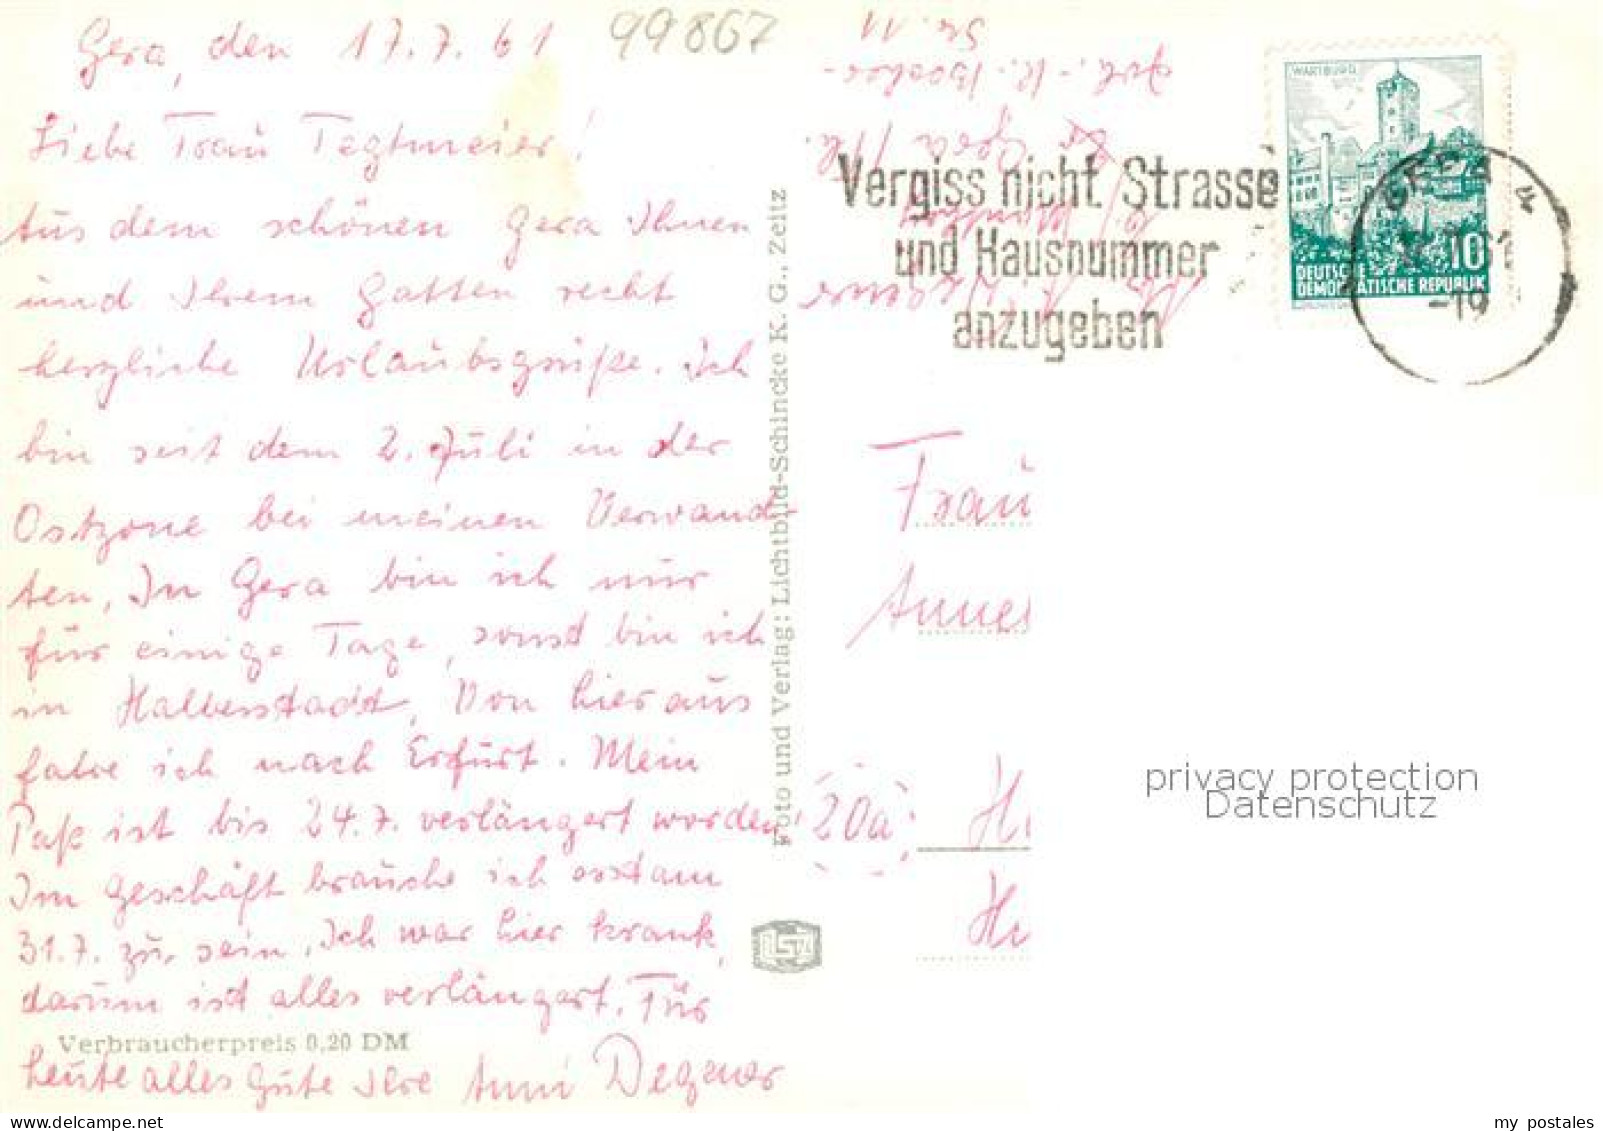 Gera, den 17.7.61
99867
Liebe Frau Tegtmeier!
Aus dem schönen Gera Ihnen
und Ihrem Gatten recht
herzliche Urlaubsgrüße. Ich
bin seit dem 2. Juli in der
Ostzone bei meinen Verwand-
ten, In Gera bin ich nur
für einige Tage, sonst bin ich
in Halberstadt, Von hier aus
fahre ich nach Erfurt. Mein
Paß ist bis 24.7. verlängert worden,
Im Geschäft brauche ich erst am
31.7. zu sein, Ich war hier krank,
darum ist alles verlängert. Für
heute alles Gute Ihre Anni Degener
Verbraucherpreis 0,20 DM
Foto und Verlag: Lichtbild-Schincke K. G., Zeitz
Str. 11
Joh.-R.-Becher-
Gera
Vergiss nicht Strasse
und Hausnummer
anzugeben
WARTBURG
10
DEUTSCHE
DEMOKRATISCHE REPUBLIK
GERA 4
-19
Frau
Anne
20a
H
privacy protection
Datenschutz
my postales